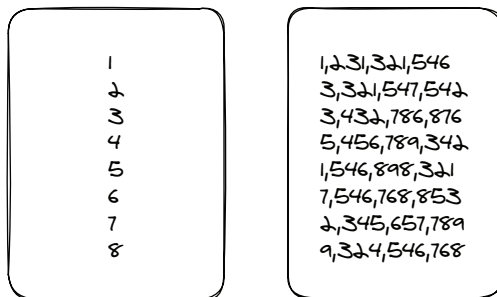 1
2
3
4
5
6
7
8
1,231,321,546
3,321,547,542
3,432,786,876
5,456,789,342
1,546,898,321
7,546,768,853
2,345,657,789
9,324,546,768